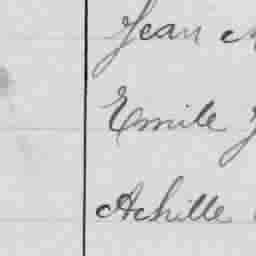 Jean
Emile
Achille